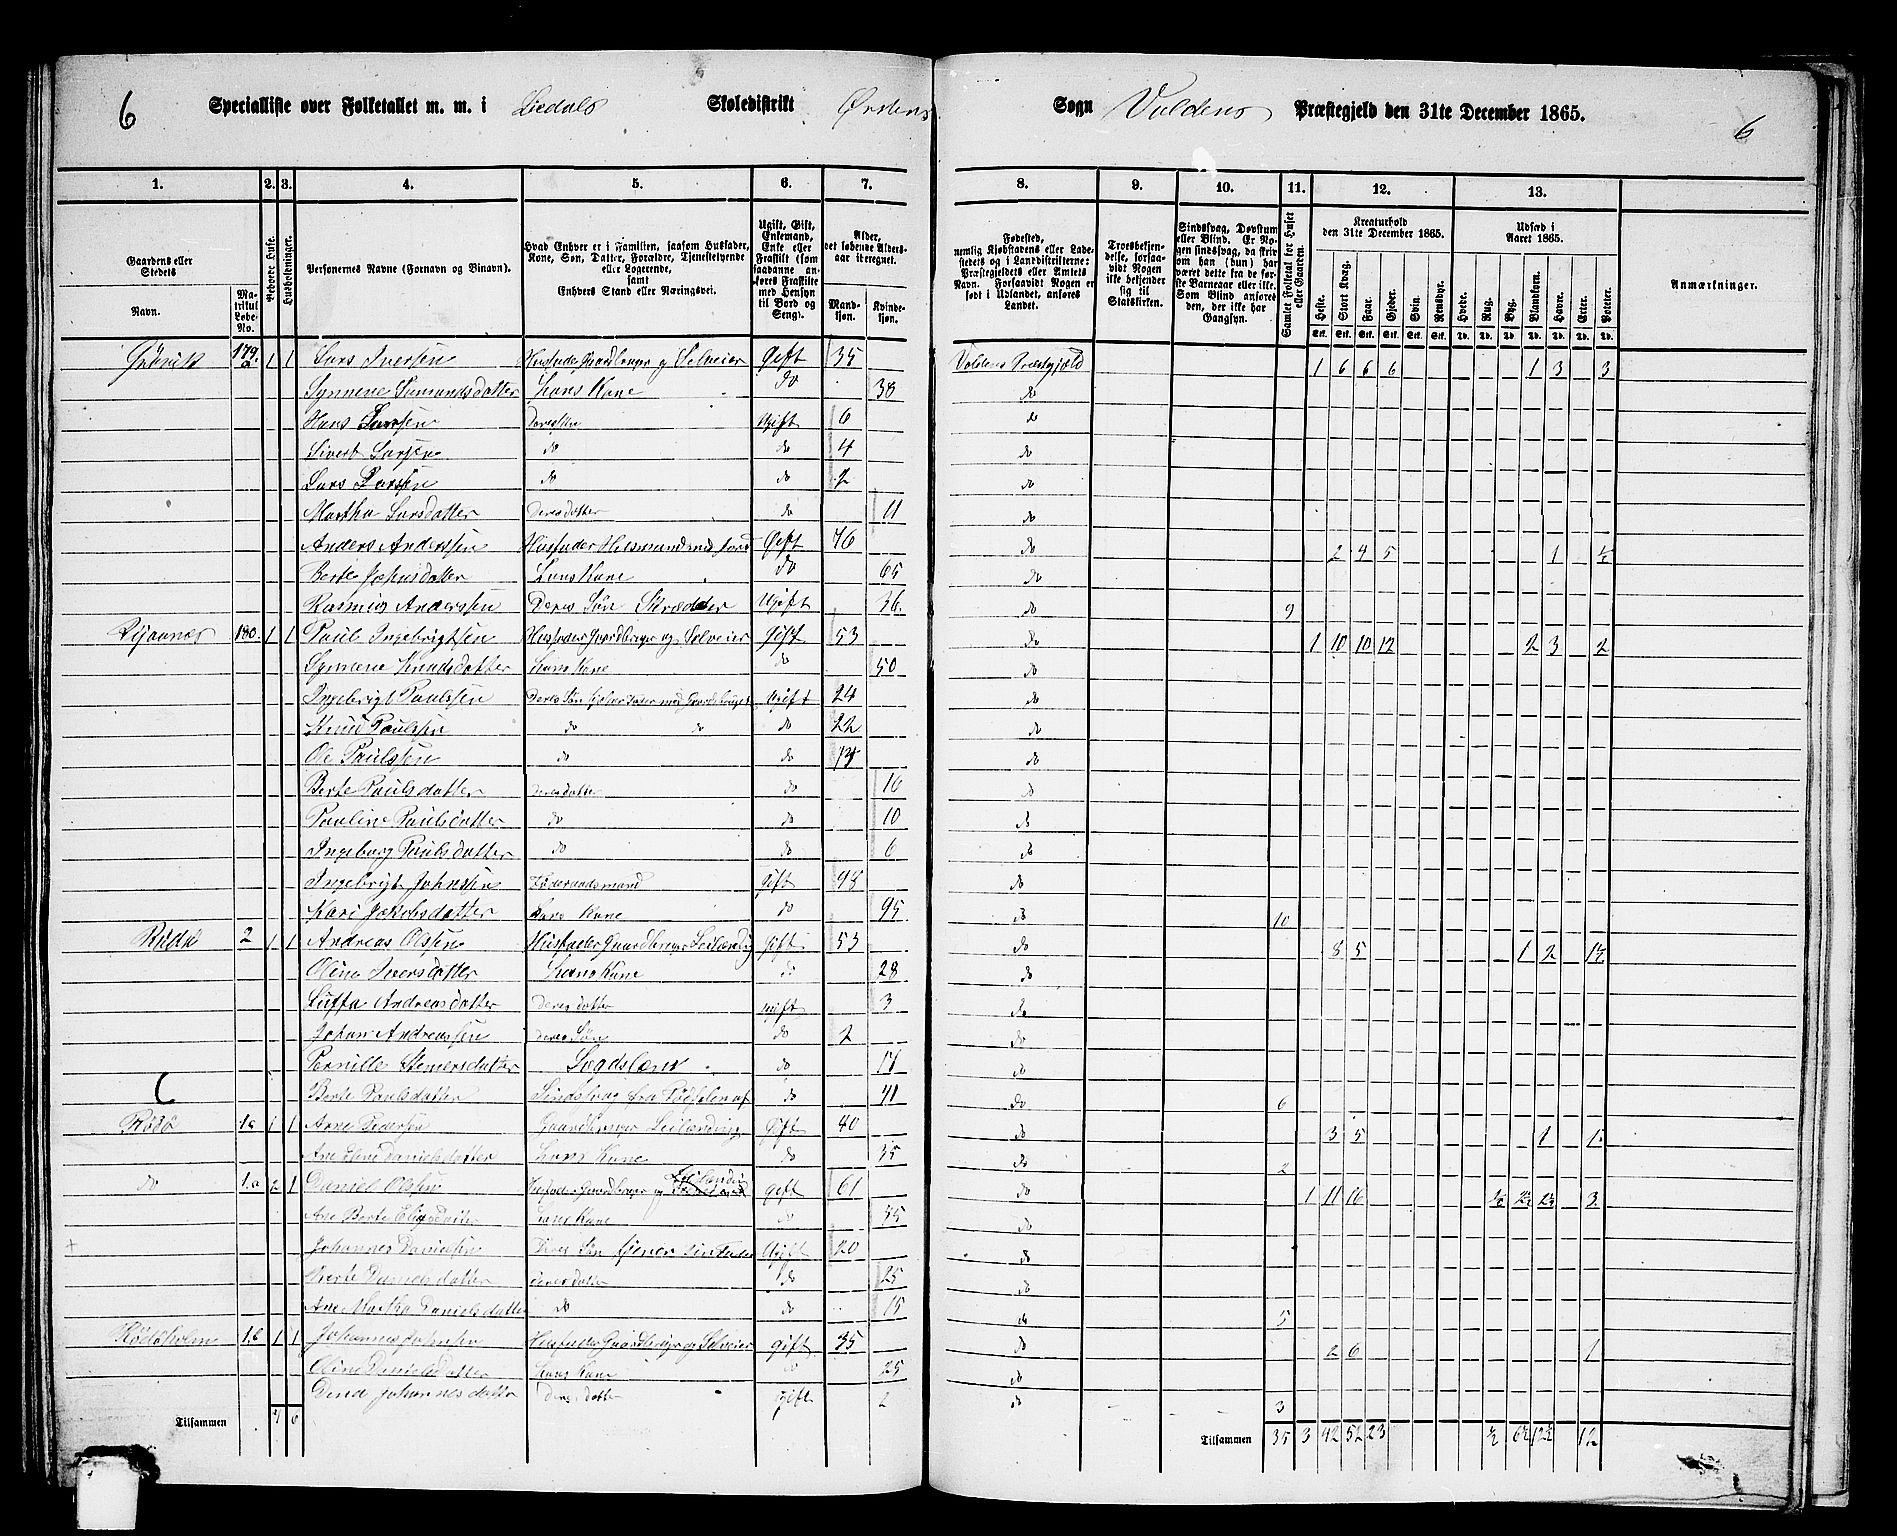 6 Specialliste over Folketallet m. m. i Liedals Skoledistrikt Ørstens Sogn Voldens Præstegjeld den 31te December 1865. 6
1. 2. 3. 4. 5. 6. 7. 8. 9. 10. 11. 12. 13.
Gaardens eller Stedets Navn. Matrikul Løbe-No.
Beboede Huse.
Husholdninger.
Personernes Navne (Fornavn og Binavn).
Hvad Enhver er i Familien, saasom Husfader, Kone, Søn, Datter, Forældre, Tjenestetyende eller Logerende, samt Enhvers Stand eller Næringsvei.
Ugift, Gift, Enkemand, Enke eller Fraskilt (som saadanne anføres Fraskilte med Hensyn til Bord og Seng).
Alder, det løbende Alders-aar iberegnet. Mandkjøn. Kvindekjøn.
Fødested, nemlig Kjøbstadens eller Ladestedets og i Landdistrikterne: Præstegjeldets eller Amtets Navn. Forsaavidt Nogen er født i Udlandet, anføres Landet.
Troesbekjendelse, forsaavidt Nogen ikke bekjender sig til Statskirken.
Sindssvag, Døvstum eller Blind. Er Nogen sindssvag, da skriv om han (hun) har været dette fra de første Barneaar eller ikke. Som Blind anføres den, der ikke har Gangsyn.
Samlet Folketal for Huset eller Gaarden.
Kreaturhold den 31te December 1865. Heste. Stort Kvæg. Faar. Gjeder. Svin. Rensdyr.
Udsæd i Aaret 1865. Hvede. Rug. Byg. Blandkorn. Havre. Erter. Poteter.
Anmærkninger.
179 a 1 1 Lars Iversen Husfader Gaardbruger og Selveier Gift 35 Voldens Præstegjeld 1 6 6 6 1 3 3
Synneve Simundsdatter Hans Kone do 38 do
Hans Larsen Deres Søn Ugift 6 do
Sivert Larsen do do 4 do
Lars Larsen do do 2 do
Martha Larsdatter Deres datter do 11 do
Anders Anderssen Husfader Huusmand med Jord Gift 46 do 2 4 5 1 ½
Berte Johnsdatter Hans Kone do 65 do
Rasmus Anderssen Deres Søn Skrædder Ugift 36 do 9
180 1 1 Paul Ingebrigtsen Husfader Gaardbruger og Selveier Gift 53 do 1 10 10 12 2 3 2
Synneve Knudsdatter Hans Kone do 50 do
Ingebrigt Paulssen Deres Søn Hjelper Fader med Gaardsbruget Ugift 24 do
Knud Paulssen do do do 22 do
Ole Paulssen do do do
Berte Paulsdatter deres datter do 16 do
Pauline Paulsdatter do do 10 do
Ingeborg Paulsdatter do do 6 do
Ingebrigt Johnssen Føderaadsmand Gift 98 do
Kari Jakobsdatter Hans Kone do 95 do 10
2 1 1 Andreas Olssen Husfader Gaardbruger Leilænding Gift 53 do 8 5 1 2 1½
Oline Iversdatter Hans Kone do 28 do
Andreasdatter Deres datter ugift 3 do
Johan Andreassen deres Søn do 2 do
Pernille Stenersdatter Lægdslem do do
Berte Paulsdatter Sindssvag fra Fødselen af do 41 do 6
Rödö 1a 1 1 Arne Pedersen Gaardbruger Leilænding Gift 40 do 3 5 1 1
Ane Danielsdatter Hans Kone do 35 do 2
do 1.a 2 1 Daniel Olsen Husfader Gaardbruger og Leilænding gift 61 do 1 11 16 3
Ane Berte Hans Kone do do
Johannes Danielsen Deres Søn tjener sin Fader Ugift 20 do
Berte Danielsdatter deres datter do 25 do
Ane Martha Danielsdatter do do 15 do 5
Rödöholm 1.b 1 1 Johannes Johnsen Husfader Gaardbruger og Selveier gift 35 do 2 6 1
Oline Danielsdatter Hans Kone do 25 do
Johannesdatter deres datter ugift 2 do 3
Tilsammen 7 6 Tilsammen 35 3 42 52 23 ½ 6½ 12½ 12